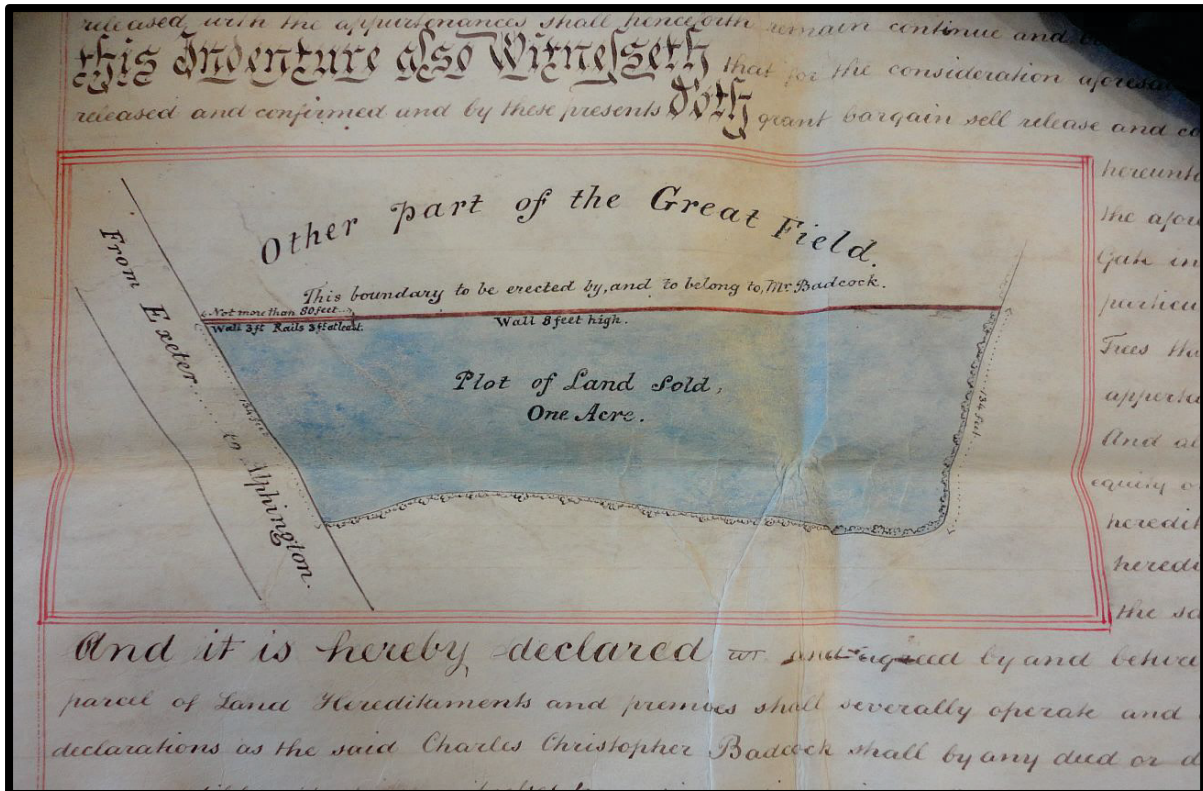 released, with the appurtenances shall henceforth remain continue and
this Indenture also Witnesseth that for the consideration aforesaid
released and confirmed and by these presents Doth grant bargain sell release and
hereunto
Other part of the Great Field.
This boundary to be erected by, and to belong to, Mr. Badcock.
Not more than 80 feet
Wall 3ft Rails 3ft at least.
Wall 8 feet high.
From Exeter to Alphington.
134 feet
Plot of Land Sold,
One Acre.
134 feet
the
Gate in
Trees
And
equity
the
And it is hereby declared and agreed by and
parcel of Land Hereditaments and premises shall severally operate and
declarations as the said Charles Christopher Badcock shall by any deed or